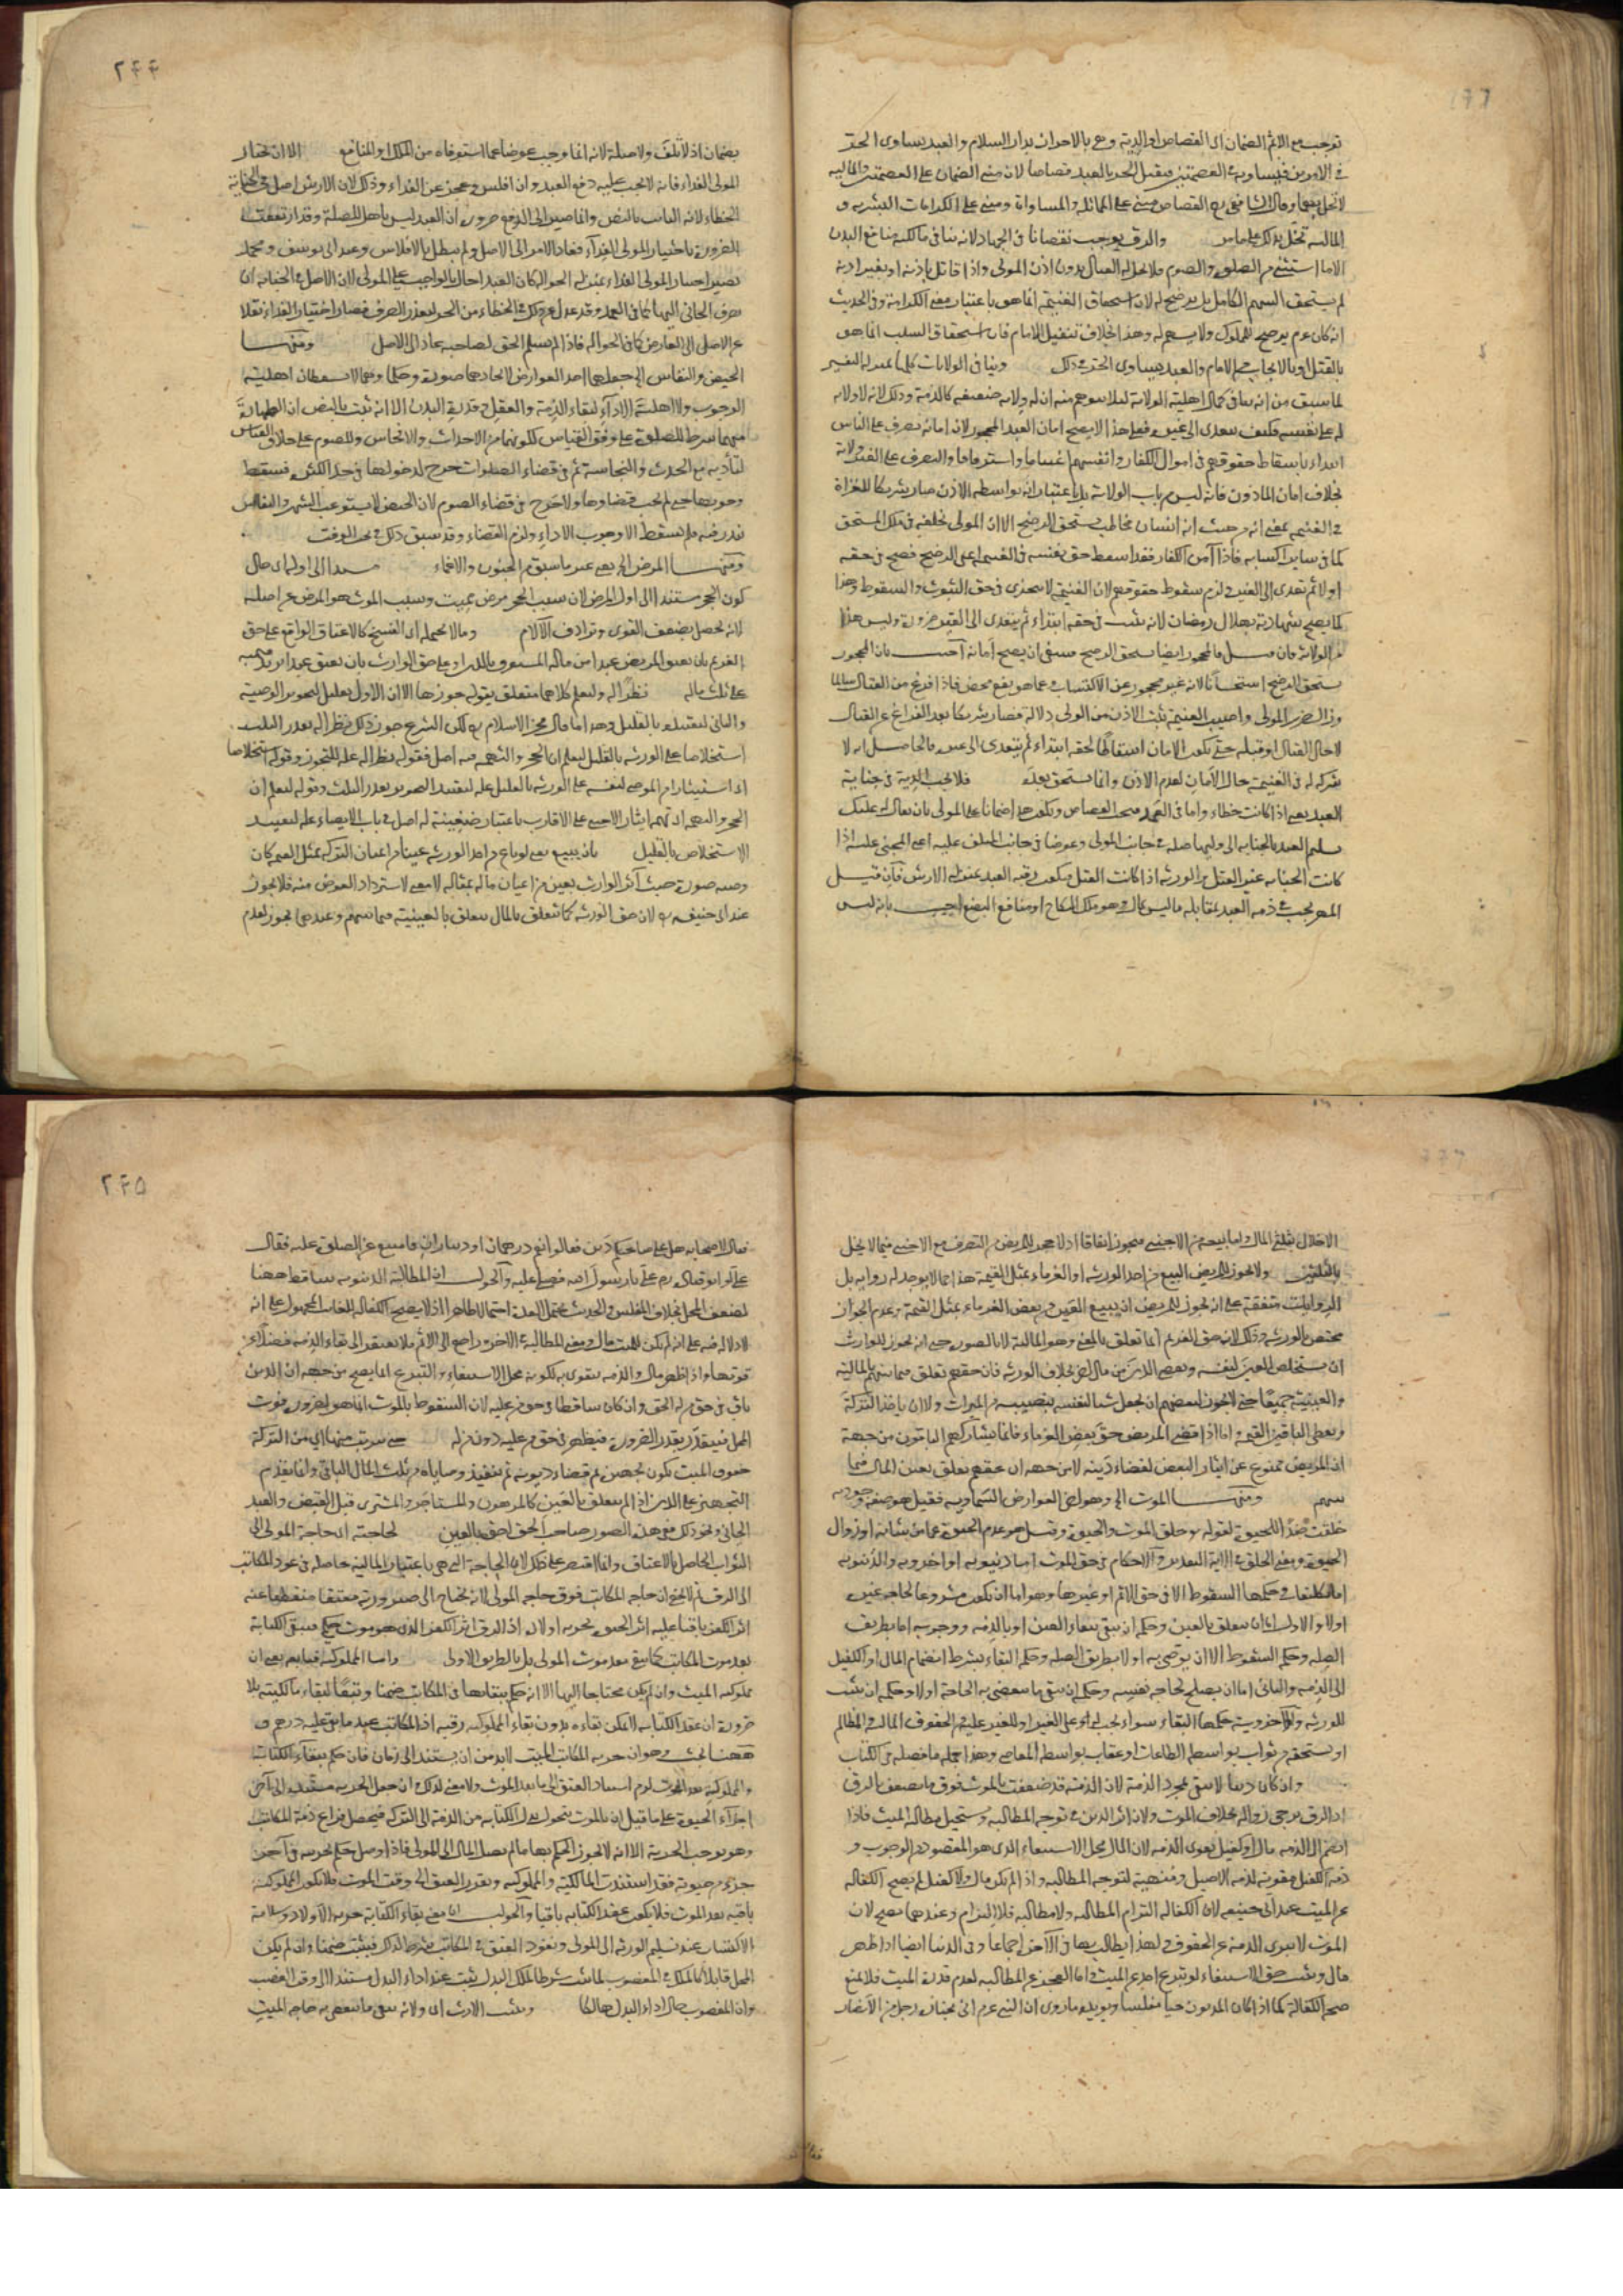 توجب مع الاثم الضمان اى القصاص او الدية وهى بالاحراز بدار السلام والعبد يساوى الحر
فى الامرين فيساويه فى العصمتين فيقتل الحر بالعبد قصاصا لان مبنى الضمان على العصمتين والمالية
لا تخل بهما وقال الشافعى القصاص مبنى على المماثلة والمساواة ومبنى على الكرامات البشرية و
المالية تخل بذلك على ما مر والرق يوجب نقصانا فى الجهاد لانه ينافى مالكية منافع البدن
الا ما استثنى من الصلوة والصوم فلا يحل له القتال بدون اذن المولى واذا قاتل باذنه او بغير اذنه
لم يستحق السهم الكامل بل يرضخ له لان استحقاق الغنيمة انما هو باعتبار معنى الكرامة وفى الحديث
انه كان عم يرضخ للمملوك ولا يسهم له وهذا بخلاف تنفيل الامام فان استحقاق السلب انما هو
بالقتل او بالايجاب من الامام والعبد يساوى الحر فى ذلك وينافى الولايات كلها
لما سبق من انه ينافى كمال اهلية الولاية
له على نفسه فكيف يتعدى الى غيره فعلى هذا لا يصح امان العبد المحجور لان امانه تصرف على الناس
ابتداء باسقاط حقوقهم فى اموال الكفار وانفسهم اغتناما واسترقاقا والتصرف على الغير ولاية
بخلاف امان المأذون فانه ليس من باب الولاية بل باعتبار انه بواسطة الاذن صار شريكا للغزاة
فى الغنيمة بمعنى انه من حيث انه انسان مخاطب يستحق الرضخ الا ان المولى يخلفه فى ملك المستحق
كما فى سائر اكسابه فاذا آمن الكفار فقد اسقط حق نفسه فى الغنيمة اعنى الرضخ فصح فى حقه
اولا ثم تعدى الى الغير فلزم سقوط حقوقهم لان الغنيمة لا تتجزى فى حق الثبوت والسقوط وهذا
كما يصح شهادته بهلال رمضان لانه يثبت فى حقه ابتداء ثم يتعدى الى الغير ضرورة وليس هذا
من الولاية فان قيل فالمحجور ايضا يستحق الرضخ فينبغى ان يصح امانه اجيب بان المحجور
يستحق الرضخ استحسانا لانه غير محجور عن الاكتساب وعما هو نفع محض فاذا فرغ من القتال سالما
وزال ضرر المولى واصيب الغنيمة ثبت الاذن من المولى دلالة فصار شريكا بعد الفراغ عن القتال
لا حال القتال او قبله حتى يكون الامان اسقاطا لحقه ابتداء ثم يتعدى الى غيره فالحاصل انه لا
شركة له فى الغنيمة حال الامان لعدم الاذن وانما يستحق بعده فلا يجب الدية فى جناية
العبد يعنى اذا كانت خطاء واما فى العمد فيجب القصاص ويكون هذا ضمانا على المولى بان يقال له عليك
تسليم العبد بالجناية الى وليها صلة فى جانب المولى وعوضا فى جانب المتلف عليه اعنى المجنى عليه اذا
كانت الجناية غير القتل والورثة اذا كانت القتل فيكون رقبة العبد بمنزلة الارش فان قيل
المهر يجب فى ذمة العبد بمقابلة ما ليس بمال وهو ملك النكاح او منافع البضع اجيب بانه ليس
٢۴۴
بضمان اذ لا تلف ولا صلة لانه انما وجب عوضا عما استوفاه من الملك او المنافع الا ان يختار
المولى الفداء فانه لا يجب عليه دفع العبد وان افلس وعجز عن الفداء وذلك لان الارش اصل فى الجناية
الخطاء لانه الثابت بالنص وانما صير الى الدفع ضرورة ان العبد ليس باهل للصلة وقد ارتفعت
الضرورة باختيار المولى الفداء فعاد الامر الى الاصل ولم يبطل بالافلاس وعند ابى يوسف ومحمد
يصير اختيار المولى الفداء بمنزلة الحوالة كأن العبد احال بالواجب على المولى لان الاصل فى الجناية ان
يصرف الجانى اليها كما فى العمد وقد عدل عن ذلك فى الخطاء من الحر لتعذر الصرف فصار اختيار الفداء نقلا
عن الاصل الى العارض كما فى الحوالة فاذا لم يسلم الحق لصاحبه عاد الى الاصل ومنها
الحيض والنفاس الخ جعلهما احد العوارض لاتحادهما صورة وحكما وهما لا يسقطان اهلية
الوجوب ولا اهلية الاداء لبقاء الذمة والعقل وقدرة البدن الا انه ثبت بالنص ان الطهارة
عنهما شرط للصلوة على وفق القياس لكونهما من الاحداث والانجاس وللصوم على خلاف القياس
لتأديه مع الحدث والنجاسة ثم فى قضاء الصلوات حرج لدخولها فى حد الكثرة فسقط
وجوبها حتى لم يجب قضاؤها ولا حرج فى قضاء الصوم لان الحيض لا يستوعب الشهر والنفاس
يندر فيه فلم يسقط الا وجوب الاداء ولزم القضاء وقد سبق ذلك فى بحث الوقت
ومنها المرض الخ يعنى غير ما سبق من الجنون والاغماء مستندا الى اوله اى حال
كون الحجر مستندا الى اول المرض لان سبب الحجر مرض مميت وسبب الموت هو المرض من اصله
لانه يحصل بضعف القوى وترادف الآلام وما لا يحتمله اى الفسخ كالاعتاق الواقع على حق
الغريم بان يعتق المريض عبدا من ماله المستغرق بالدين او على حق الوارث بان يعتق عبدا يزيد قيمته
على ثلث ماله نظرا له وليعلم كلاهما متعلق بقوله جوزها الا ان الاول تعليل لتجويز الوصية
والثانى لتقييده بالقليل وهذا ما قال فخر الاسلام لكن الشرع جوز ذلك نظرا له بقدر الثلث
استخلاصا على الورثة بالقليل ليعلم ان الحجر والتهمة فيه اصل فقوله نظرا له علة للتجويز وقوله استخلاصا
اى استيثارا من الموصى لنفسه على الورثة بالقليل علة لتقييد التصرف بقدر الثلث وقوله ليعلم ان
الحجر والتهمة اى تهمة ايثار الاجنبى على الاقارب باعتبار ضغينة له اصل فى باب الايصاء علة لتقييد
الاستخلاص بالقليل بان يبيع يعنى لو باع من احد الورثة عينا من اعيان التركة بمثل القيمة كان
وصية صورة حيث آثر الوارث بعين من اعيان ماله بمقاله لا معنى لاسترداد العوض منه فلا يجوز
عند ابى حنيفة لان حق الورثة كما تعلق بالمال يتعلق بالعينية فيما بينهم وعندهما يجوز لعدم
الاخلال بثلثى المال واما بيعه من الاجنبى فيجوز اتفاقا اذ لا حجر للمريض من التصرف مع الاجنبى فيما لا يخل
بالثلثين ولا يجوز للمريض البيع من احد الورثة او الغرماء بمثل القيمة هذا مما لا يوجد له رواية بل
الروايات متفقة على انه يجوز للمريض ان يبيع العين من بعض الغرماء بمثل القيمة وعدم الجواز
مختص بالورثة وذلك لان حق الغريم انما تعلق بالمعنى وهو المالية لا بالصورة حتى انه يجوز للوارث
ان يستخلص العين لنفسه ويقضى الدين من مال آخر بخلاف الورثة فان حقهم تعلق فيما بينهم بالمالية
والعينية جميعا حتى لا يجوز لبعضهم ان يجعل شيئا لنفسه بنصيبه من الميراث ولا ان يأخذ التركة
ويعطى الباقين القيمة واما اذا قضى المريض حق بعض الغرماء فانما يشاركهم الباقون من جهة
ان المريض ممنوع عن ايثار البعض لقضاء دينه لا من جهة ان حقهم تعلق بعين المال فيما
بينهم ومنها الموت الخ وهو اخر العوارض السماوية فقيل هو صفة وجودية
خلقت ضدا للحيوة لقوله تع خلق الموت والحيوة وقيل هو عدم الحيوة عما من شانه او زوال
الحيوة ومعنى الخلق فى الاية التقدير والاحكام فى حق الموت اما دنيوية او اخروية والدنيوية
اما تكليفات وحكمها السقوط الا فى حق الاثم او غيرها وهو اما ان يكون مشروعا لحاجة غيره
اولا والاول اما ان يتعلق بالعين وحكمه ان يبقى ببقاء العين او بالذمة ووجوبه اما بطريق
الصلة وحكمه السقوط الا ان يوصى به او لا بطريق الصلة وحكمه البقاء بشرط انضمام المال او الكفيل
الى الذمة والثانى اما ان يصلح لحاجة نفسه وحكمه ان يبقى ما ينقضى به الحاجة اولا وحكمه ان يثبت
للورثة والاخروية حكمها البقاء سواء يجب له على الغير او للغير عليه من الحقوق المالية والمظالم
او يستحقه من ثواب بواسطة الطاعات او عقاب بواسطة المعاصى وهذا جملة ما فصله فى الكتاب
وان كان دينا لا يبقى بمجرد الذمة لان الذمة قد ضعفت بالموت فوق ما تضعف بالرق
اذ الرق يرجى زواله بخلاف الموت ولان اثر الدين فى توجه المطالبة ويستحيل مطالبة الميت فاذا
انضم الى الذمة مال او كفيل تقوى الذمة لان المال محل الاستيفاء الذى هو المقصود من الوجوب و
ذمة الكفيل مقوية لذمة الاصيل ومنهية لتوجه المطالبة واذا لم يكن مال ولا كفيل لم يصح الكفالة
عن الميت عند ابى حنيفة لان الكفالة التزام المطالبة ولا مطالبة فلا التزام وعندهما تصح لان
الموت لا يبرئ الذمة عن الحقوق ولهذا يطالب بها فى الآخرة اجماعا وفى الدنيا ايضا اذا ظهر
مال ويثبت حق الاستيفاء لو تبرع احد عن الميت واما العجز عن المطالبة لعدم قدرة الميت فلا يمنع
صحة الكفالة كما اذا كان المديون حيا مفلسا ويؤيده ما روى ان النبى عم اتى بجنازة رجل من الانصار
٢۴۵
فقال لاصحابه هل على صاحبكم دين فقالوا نعم درهمان او ديناران فامتنع عن الصلوة عليه فقال
على او ابو قتادة هما على يا رسول الله فصلى عليه والجواب ان المطالبة الدنيوية ساقطة ههنا
لضعف المحل بخلاف المفلس والحديث يحتمل العدة احتمالا ظاهرا اذ لا يصح الكفالة للغائب المجهول على انه
لا دلالة فيه على انه لم يكن للميت مال ومعنى المطالبة فى الآخرة راجع الى الاثم فلا يفتقر الى بقاء الذمة فضلا عن
قوتها واذا ظهر مال فالذمة تتقوى به لكونه محل الاستيفاء والتبرع انما يصح من جهة ان الدين
باق فى حق من له الحق وان كان ساقطا فى حق من عليه لان السقوط بالموت انما هو لضرورة فوت
المحل فيتقدر بقدر الضرورة فيظهر فى حق من عليه دون من له حتى يترتب منها اى من التركة
حقوق الميت فيكون تجهيزه ثم قضاء ديونه ثم تنفيذ وصاياه من ثلث المال الباقى وانما يقدم
التجهيز على الدين اذا لم يتعلق بالعين كالمرهون والمستاجر والمشترى قبل القبض والعبد
الجانى ونحو ذلك ففى هذه الصور صاحب الحق احق بالعين لحاجته اى حاجة المولى الى
الثواب الحاصل بالاعتاق وانما اقتصر على ذلك لان الحاجة التى هى باعتبار المالية حاصلة فى عود المكاتب
الى الرق ثم لا يخفى ان حاجة المكاتب فوق حاجة المولى لانه يحتاج الى صيرورته معتقا منقطعا عنه
اثر الكفر باقيا عليه اثر الحيوة بحرية اولاده اذ الرق اثر الكفر الذى هو موت حكمى فبقى الكتابة
بعد موت المكاتب كما يبقى بعد موت المولى بل بالطريق الاولى واما المملوكية فتابعة يعنى ان
مملوكية الميت وان لم يكن محتاجا اليها الا انه حكم ببقائها فى المكاتب ضمنا وتبعا لبقاء مالكيته يدا
ضرورة ان عقد الكتابة لا يمكن بقاءه بدون بقاء المملوكية رقبة اذ المكاتب عبد ما بقى عليه درهم و
ههنا بحث وهو ان حرية المكاتب الميت لا بد من ان يستند الى زمان فان حكم ببقاء الكتابة
والمملوكية بعد الموت لزم اسناد العتق الى ما بعد الموت ولا معنى لذلك وان جعل الحرية مستندة الى آخر
اجزاء الحيوة على ما قيل ان بالموت يتحول بدل الكتابة من الذمة الى التركة فيحصل فراغ ذمة المكاتب
وهو يوجب الحرية الا انه لا يجوز الحكم بها ما لم يصل المال الى المولى فاذا وصل حكم بحريته فى آخر
جزء من حيوته فقد استندت المالكية والمملوكية وتقرر العتق الى وقت الموت فلا يكون المملوكية
باقية بعد الموت فلا يكون عقد الكتابة باقيا والجواب ان معنى بقاء الكتابة حرية الاولاد وسلامة
الاكتساب عند تسليم الورثة الى المولى ونفوذ العتق فى المكاتب شرط لذلك فيثبت ضمنا وان لم يكن
المحل قابلا كالملك فى المغصوب لما ثبت شرطا لملك البدل يثبت عند اداء البدل مستندا الى وقت الغصب
وان المغصوب حال اداء البدل هالكا ويثبت الارث اى ولانه يبقى ما تنقضى به حاجة الميت